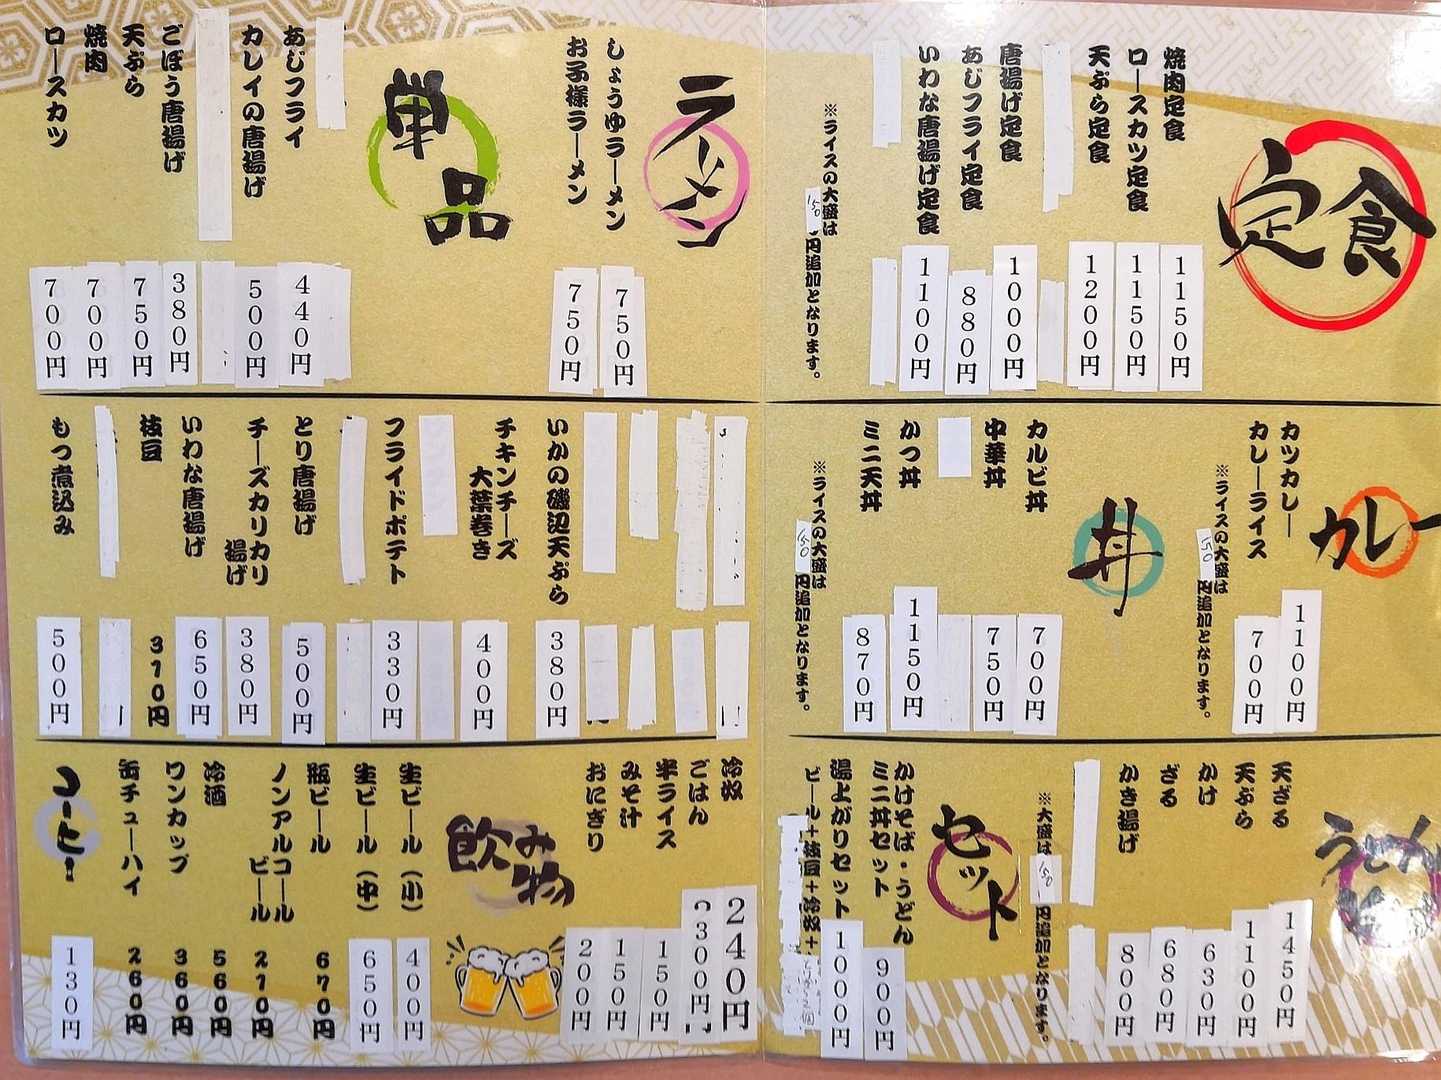 定食
焼肉定食 1150円
ロースカツ定食 1150円
天ぷら定食 1200円
唐揚げ定食 1000円
あじフライ定食 880円
いわな唐揚げ定食 1100円
※ライスの大盛は
150円追加となります。
ラーメン
しょうゆラーメン 750円
お子様ラーメン 750円
単品
あじフライ 440円
カレイの唐揚げ 500円
ごぼう唐揚げ 380円
天ぷら 750円
焼肉 700円
ロースカツ 700円
カレー
カツカレー 1100円
カレーライス 700円
※ライスの大盛は
150円追加となります。
丼
カルビ丼 700円
中華丼 750円
かつ丼 1150円
ミニ天丼 870円
※ライスの大盛は
150円追加となります。
いかの磯辺天ぷら 380円
チキンチーズ
大葉巻き 400円
フライドポテト 330円
とり唐揚げ 500円
チーズカリカリ
揚げ 380円
いわな唐揚げ 650円
枝豆 310円
もつ煮込み 500円
うどん
天ざる 1450円
天ぷら 1100円
かけ 630円
ざる 680円
かき揚げ 800円
※大盛は150円追加となります。
セット
かけそば・うどん
ミニ丼セット 900円
湯上がりセット 1000円
ビール+枝豆+冷奴+
冷奴 240円
ごはん 300円
半ライス 150円
みそ汁 150円
おにぎり 200円
飲み物
生ビール(小) 400円
生ビール(中) 650円
瓶ビール 670円
ノンアルコール
ビール 210円
冷酒 560円
ワンカップ 360円
缶チューハイ 260円
コーヒー 130円